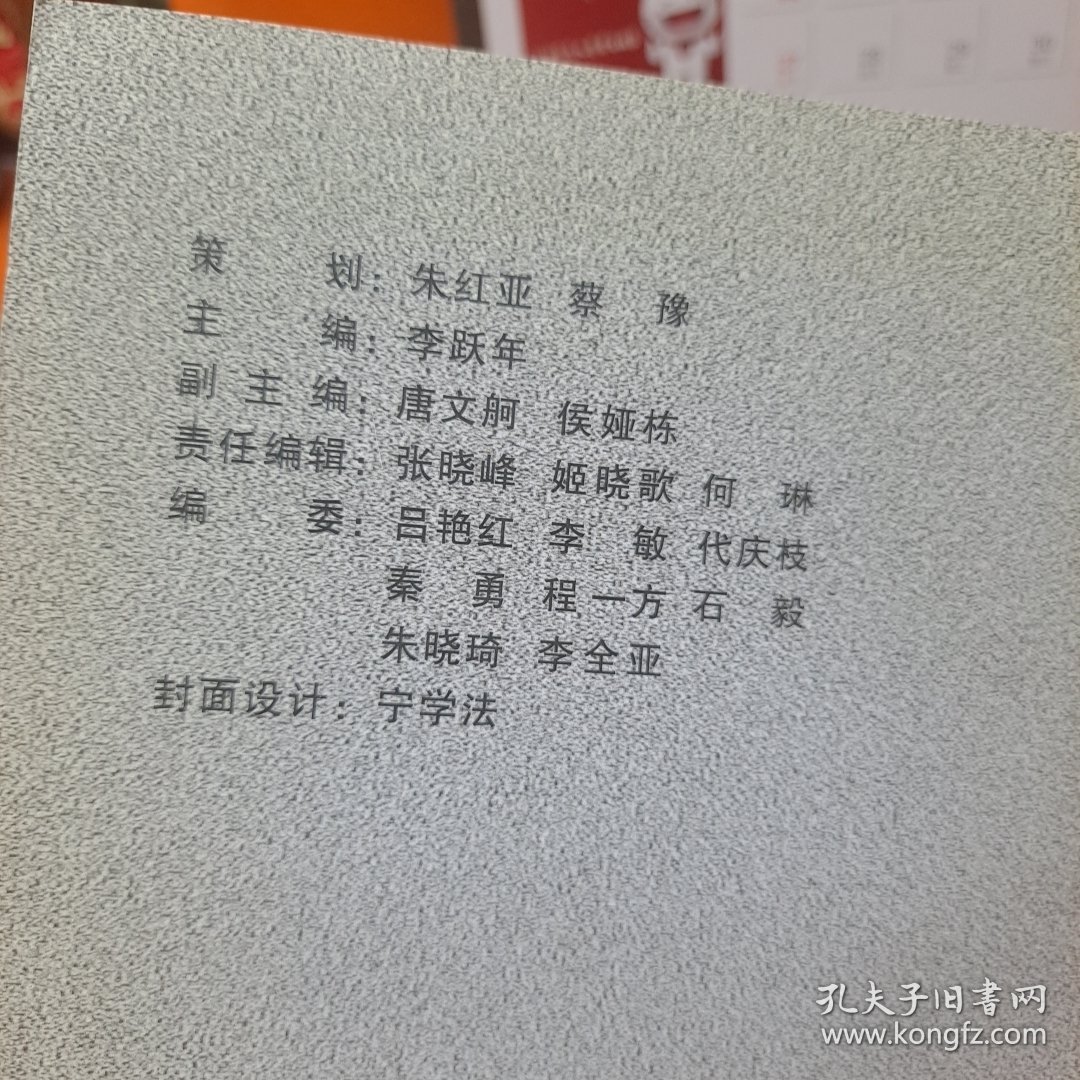 策 划：朱红亚 蔡 豫
主 编：李跃年
副 主 编：唐文舸 侯娅栋
责任编辑：张晓峰 姬晓歌 何 琳
编 委：吕艳红 李 敏 代庆枝
秦 勇 程一方 石 毅
朱晓琦 李全亚
封面设计：宁学法
孔夫子旧書网
www.kongfz.com